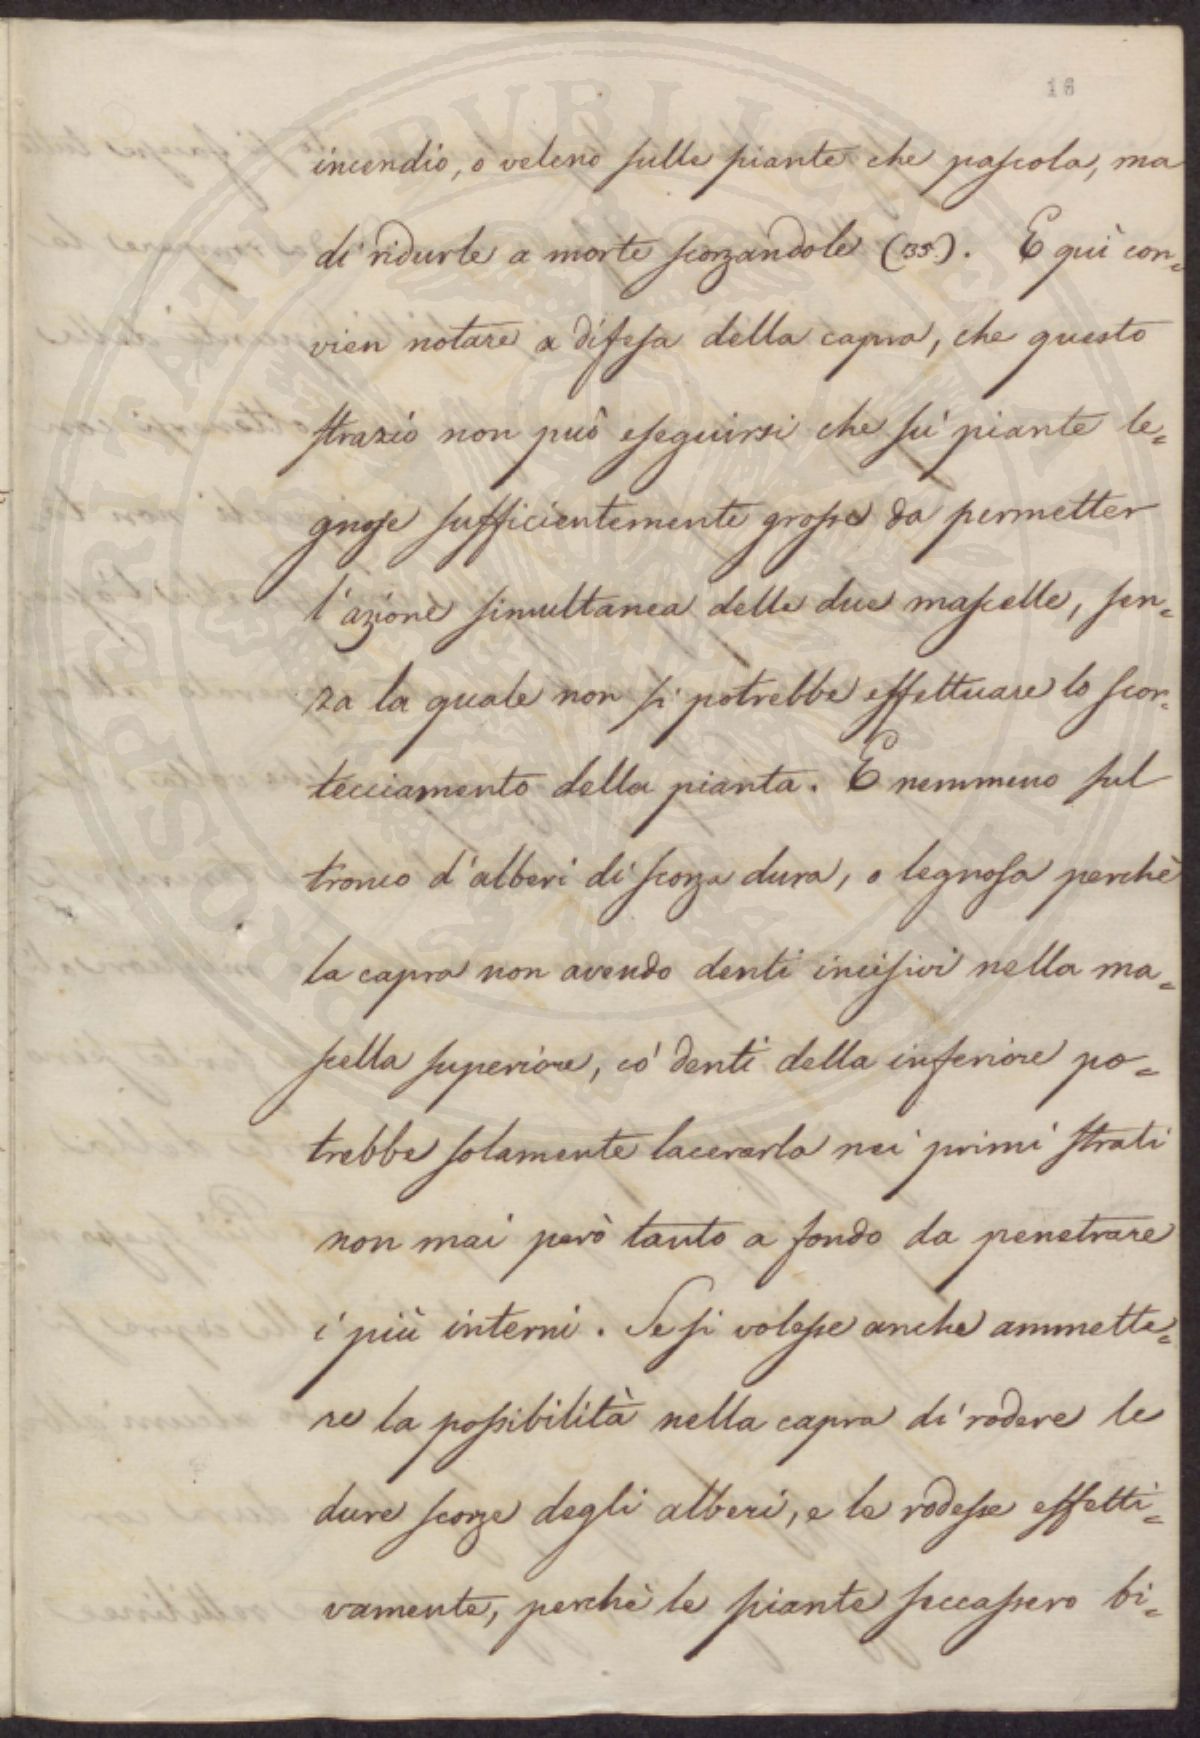 16
incendio, o veleno sulle piante che pascola, ma
di ridurle a morte scorzandole (135). E quì con=
vien notare a difesa della capra, che questo
strazio non può eseguirsi che sù piante le=
gnose sufficientemente grosse da permetter
l'azione simultanea delle due mascelle, sen=
za la quale non si potrebbe effettuare lo scor=
tecciamento della pianta. E nemmeno sul
tronco d'alberi di scorza dura, o legnosa perchè
la capra non avendo denti incisivi nella ma=
scella superiore, co' denti della inferiore po=
trebbe solamente lacerarla nei primi strati
non mai però tanto a fondo da penetrare
i più interni. Se si volesse anche ammette=
re la possibilità nella capra di rodere le
dure scorze degli alberi, e le rodesse effetti=
vamente, perchè le piante seccassero bi=